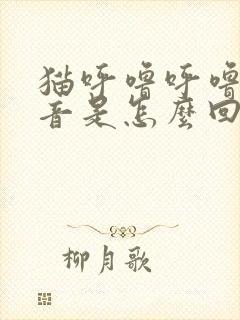 猫呼噜呼噜
音是怎麼回
柳月歌